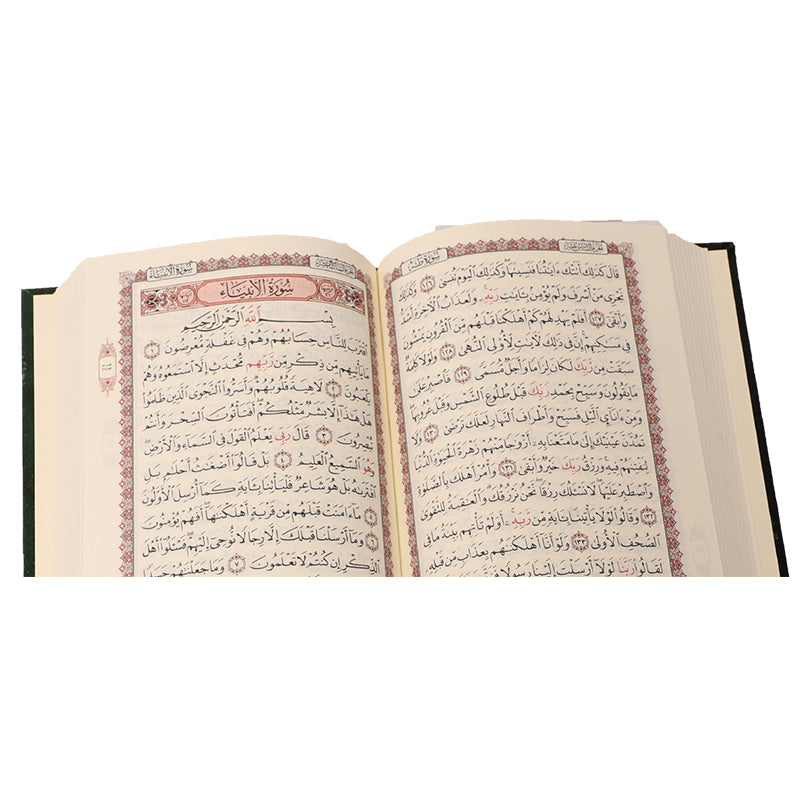 سورة طه
قال كذلك أتتك ءايتنا فنسيتها وكذلك اليوم تنسى ١٢٦ وكذلك
نجزى من أسرف ولم يؤمن بـٔايت ربه ولعذاب الأخرة أشد
وأبقى ١٢٧ أفلم يهد لهم كم أهلكنا قبلهم من القرون يمشون
فى مسكنهم إن فى ذلك لأيت لأولى النهى ١٢٨ ولولا كلمة
سبقت من ربك لكان لزاما وأجل مسمى ١٢٩ فاصبر على
ما يقولون وسبح بحمد ربك قبل طلوع الشمس وقبل غروبها
ومن ءانائ اليل فسبح وأطراف النهار لعلك ترضى ١٣٠ ولا
تمدن عينيك إلى ما متعنا به أزوجا منهم زهرة الحيوة الدنيا
لنفتنهم فيه ورزق ربك خير وأبقى ١٣١ وأمر أهلك بالصلوة
واصطبر عليها لا نسـٔلك رزقا نحن نرزقك والعقبة للتقوى
١٣٢ وقالوا لولا يأتينا بـٔاية من ربه أولم تأتهم بينة ما فى
الصحف الأولى ١٣٣ ولو أنا أهلكنهم بعذاب من قبله
لقالوا ربنا لولا أرسلت إلينا رسولا فنتبع
سورة الأنبياء
سورة الأنبياء
بسم الله الرحمن الرحيم
اقترب للناس حسابهم وهم فى غفلة معرضون ١
ما يأتيهم من ذكر من ربهم محدث إلا استمعوه وهم
يلعبون ٢ لاهية قلوبهم وأسروا النجوى الذين ظلموا
هل هذا إلا بشر مثلكم أفتأتون السحر وأنتم
تبصرون ٣ قال ربى يعلم القول فى السماء والأرض
وهو السميع العليم ٤ بل قالوا أضغث أحلم بل
افترىه بل هو شاعر فليأتنا بـٔاية كما أرسل الأولون
٥ ما ءامنت قبلهم من قرية أهلكنها أفهم يؤمنون
٦ وما أرسلنا قبلك إلا رجالا نوحى إليهم فسـٔلوا أهل
الذكر إن كنتم لا تعلمون ٧ وما جعلنهم جسدا